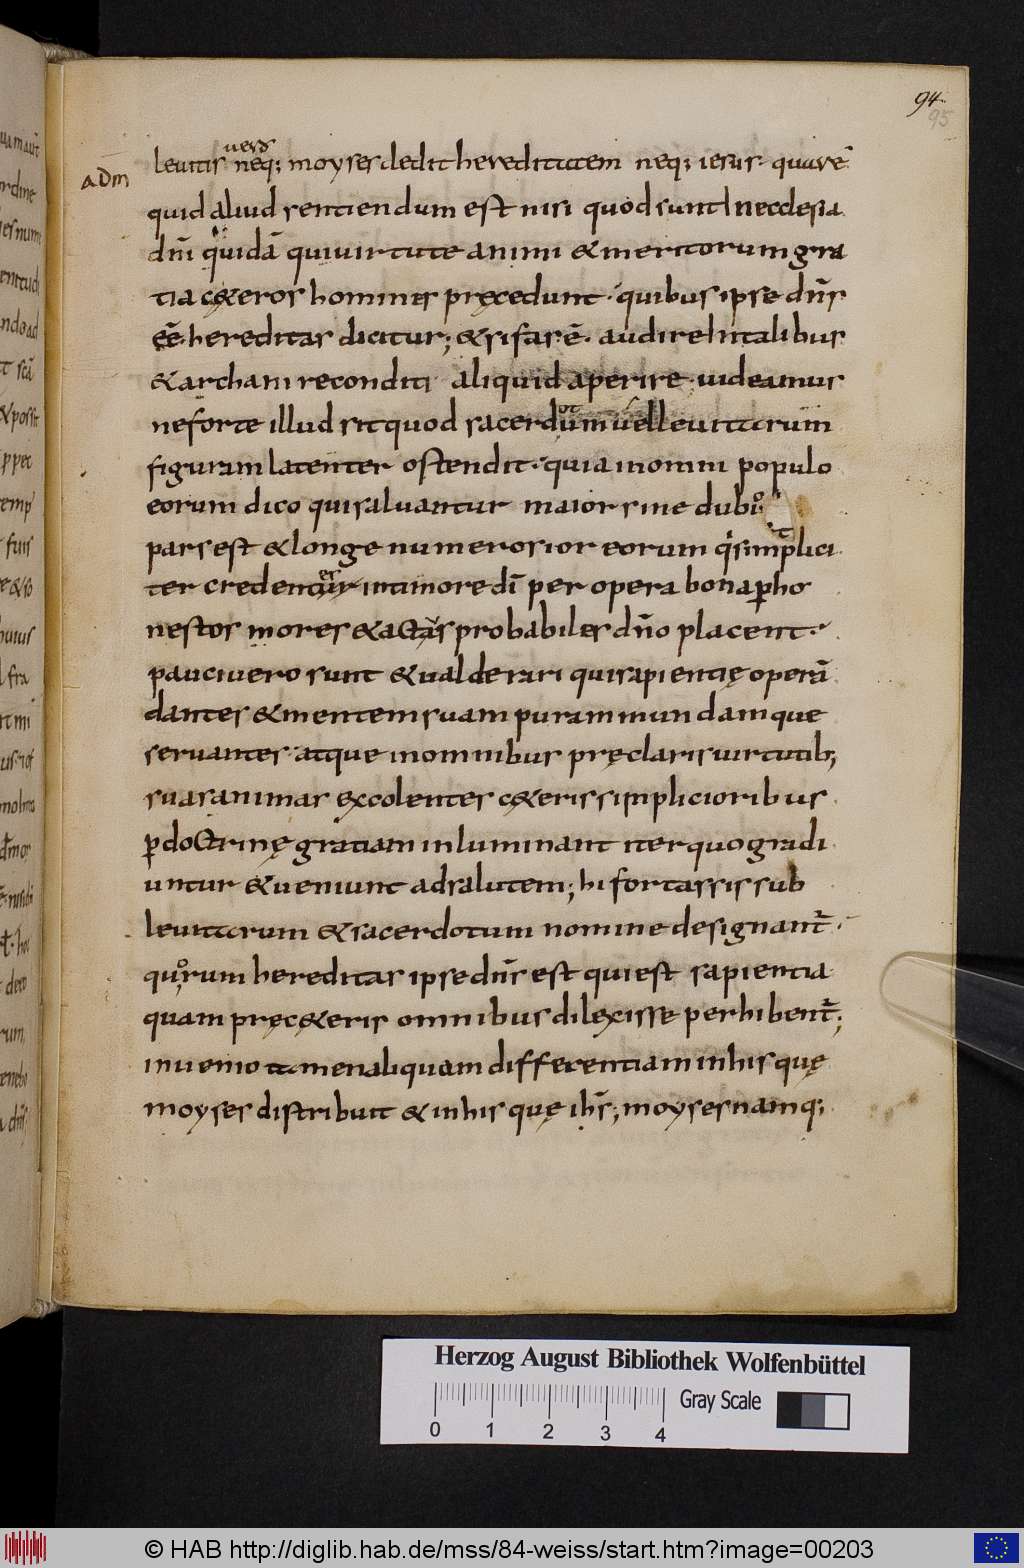 94
95
adm
uero
leuitis neq; moyses dedit hereditatem neq; iesus quare
quid aliud sentiendum est nisi quod sunt In ecclesia
dñi quidā qui uirtute animi & meritorum gra
tia c&eros homines pręcedunt · quibus ipse dñs
eē hereditas dicitur; & si fas ē · audire In talibus
& archam reconditi aliquid aperire · uideamus
ne forte illud sit quod sacerdotum uel leuitarum
figuram latenter ostendit · quia in omni populo
eorum dico qui saluantur maior sine dubio
pars est & longe numerosior eorum qui simplici
ter credentes in timore dī per opera bona p ho
nestos mores & actus probabiles dño placent ·
pauci uero sunt & ualde rari qui sapientię operā
dantes & mentem suam puram mundamque
seruantes atque in omnibus pręclaris uirtutib;
suas animas excolentes c&eris simplicioribus
p doctrinę gratiam inluminant iter quo gradi
untur & ueniunt ad salutem; hi fortassis sub
leuitarum & sacerdotum nomine designant ·
quorum hereditas ipse dñs est qui est sapientia
quam pręc&eris omnibus dilexisse perhibent;
inuenio tamen aliquam differentiam in his quę
moyses distribuit & in his quę ihs; moyses namq;
Herzog August Bibliothek Wolfenbüttel
Gray Scale
0 1 2 3 4
© HAB http://diglib.hab.de/mss/84-weiss/start.htm?image=00203